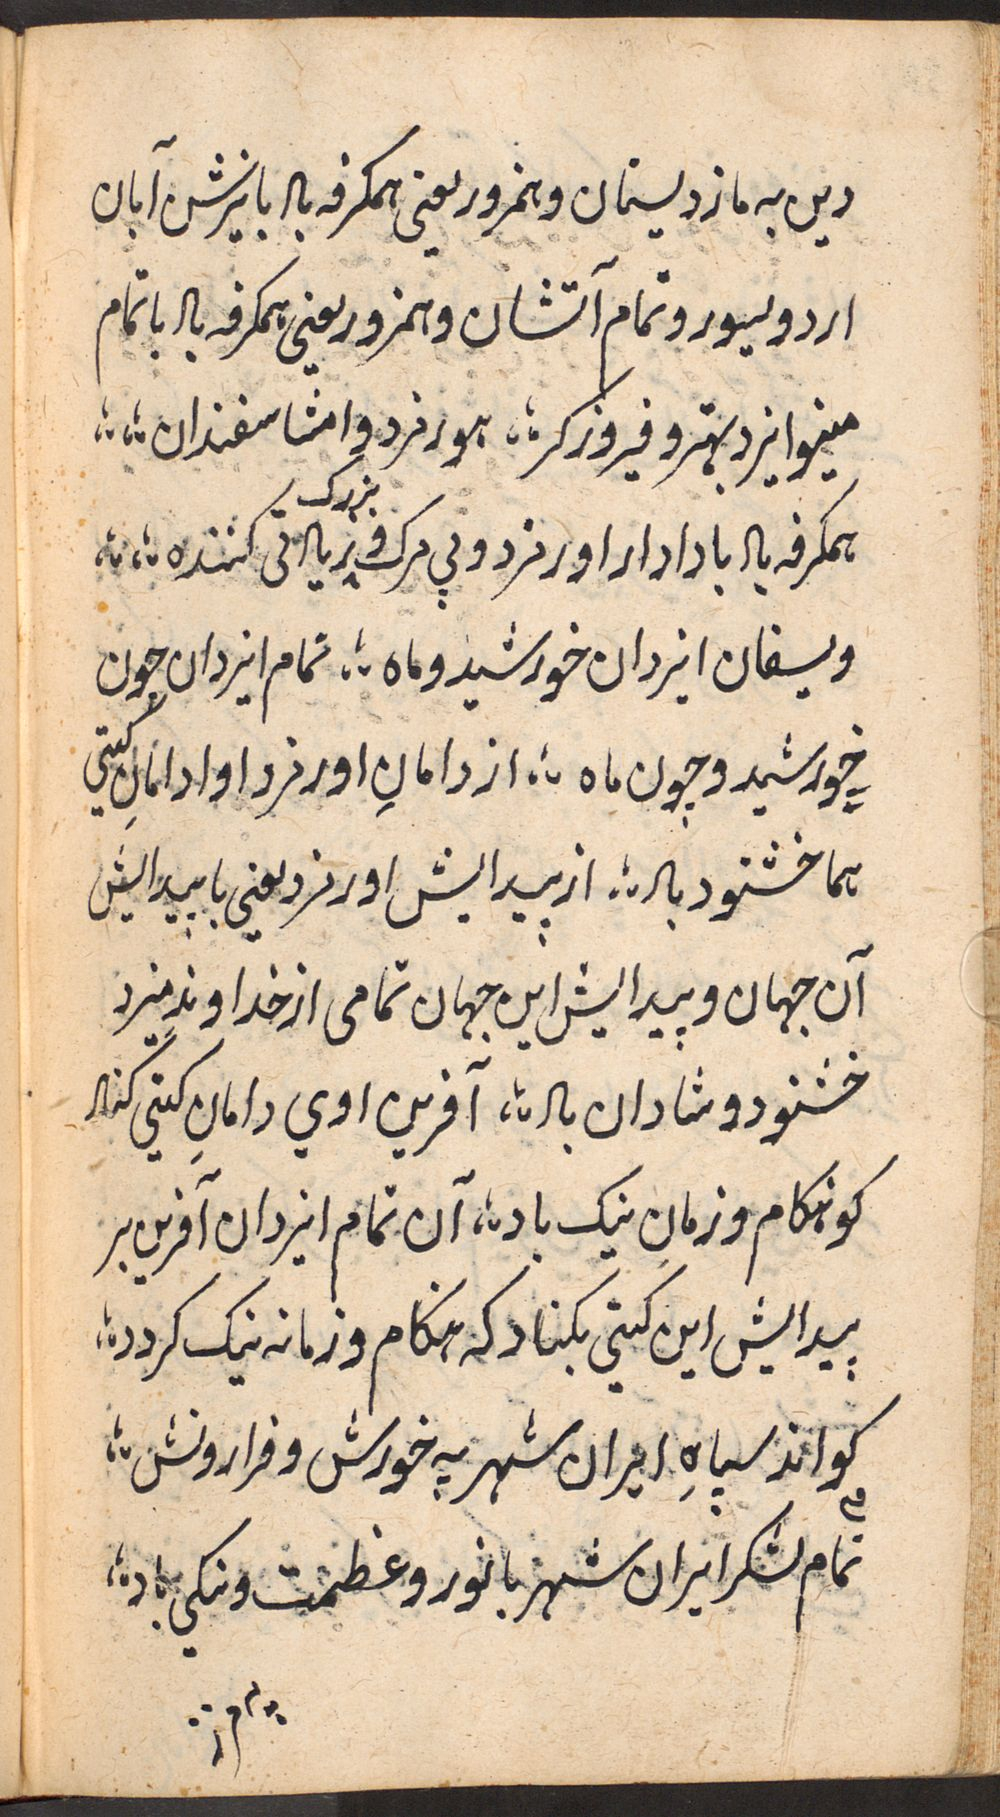 دین به مازدیسنان و همزور یعنی همکرفه باد با نیزش آبان
اردویسور و تمام آتشان و همزور یعنی همکرفه باد با تمام
مینوایزد بهتر و فیروزکر ؛، هورمزد و امشاسفندان ؛، ؛
همکرفه باد با دادار اورمزد و بی مرک و بزرک کننده ؛، ؛،
ویسفان ایزدان خورشید و ماه ؛، تمام ایزدان چون
خورشید و چون ماه ؛، از دامانِ اورمزد اوا دامانِ کیتی
هما خشنود باد ؛، از پیدایش اورمزد یعنی با پیدایش
آن جهان و پیدایش این جهان تمامی از خداوند
خشنود و شادان باد ؛، آفرین اوی دامانِ کیتی کناد
کو هنکام و زمانِ نیک باد ؛، آن تمام ایزدان آفرین بر
پیدایش این کیتی بکناد که هنکام و زمانه نیک کردد ؛،
کو اند سپاهِ ایران شهر به خورش و فرارونش ؛،
تمام لشکر ایران شهر با نور و عظمت و نیکی باد ؛،